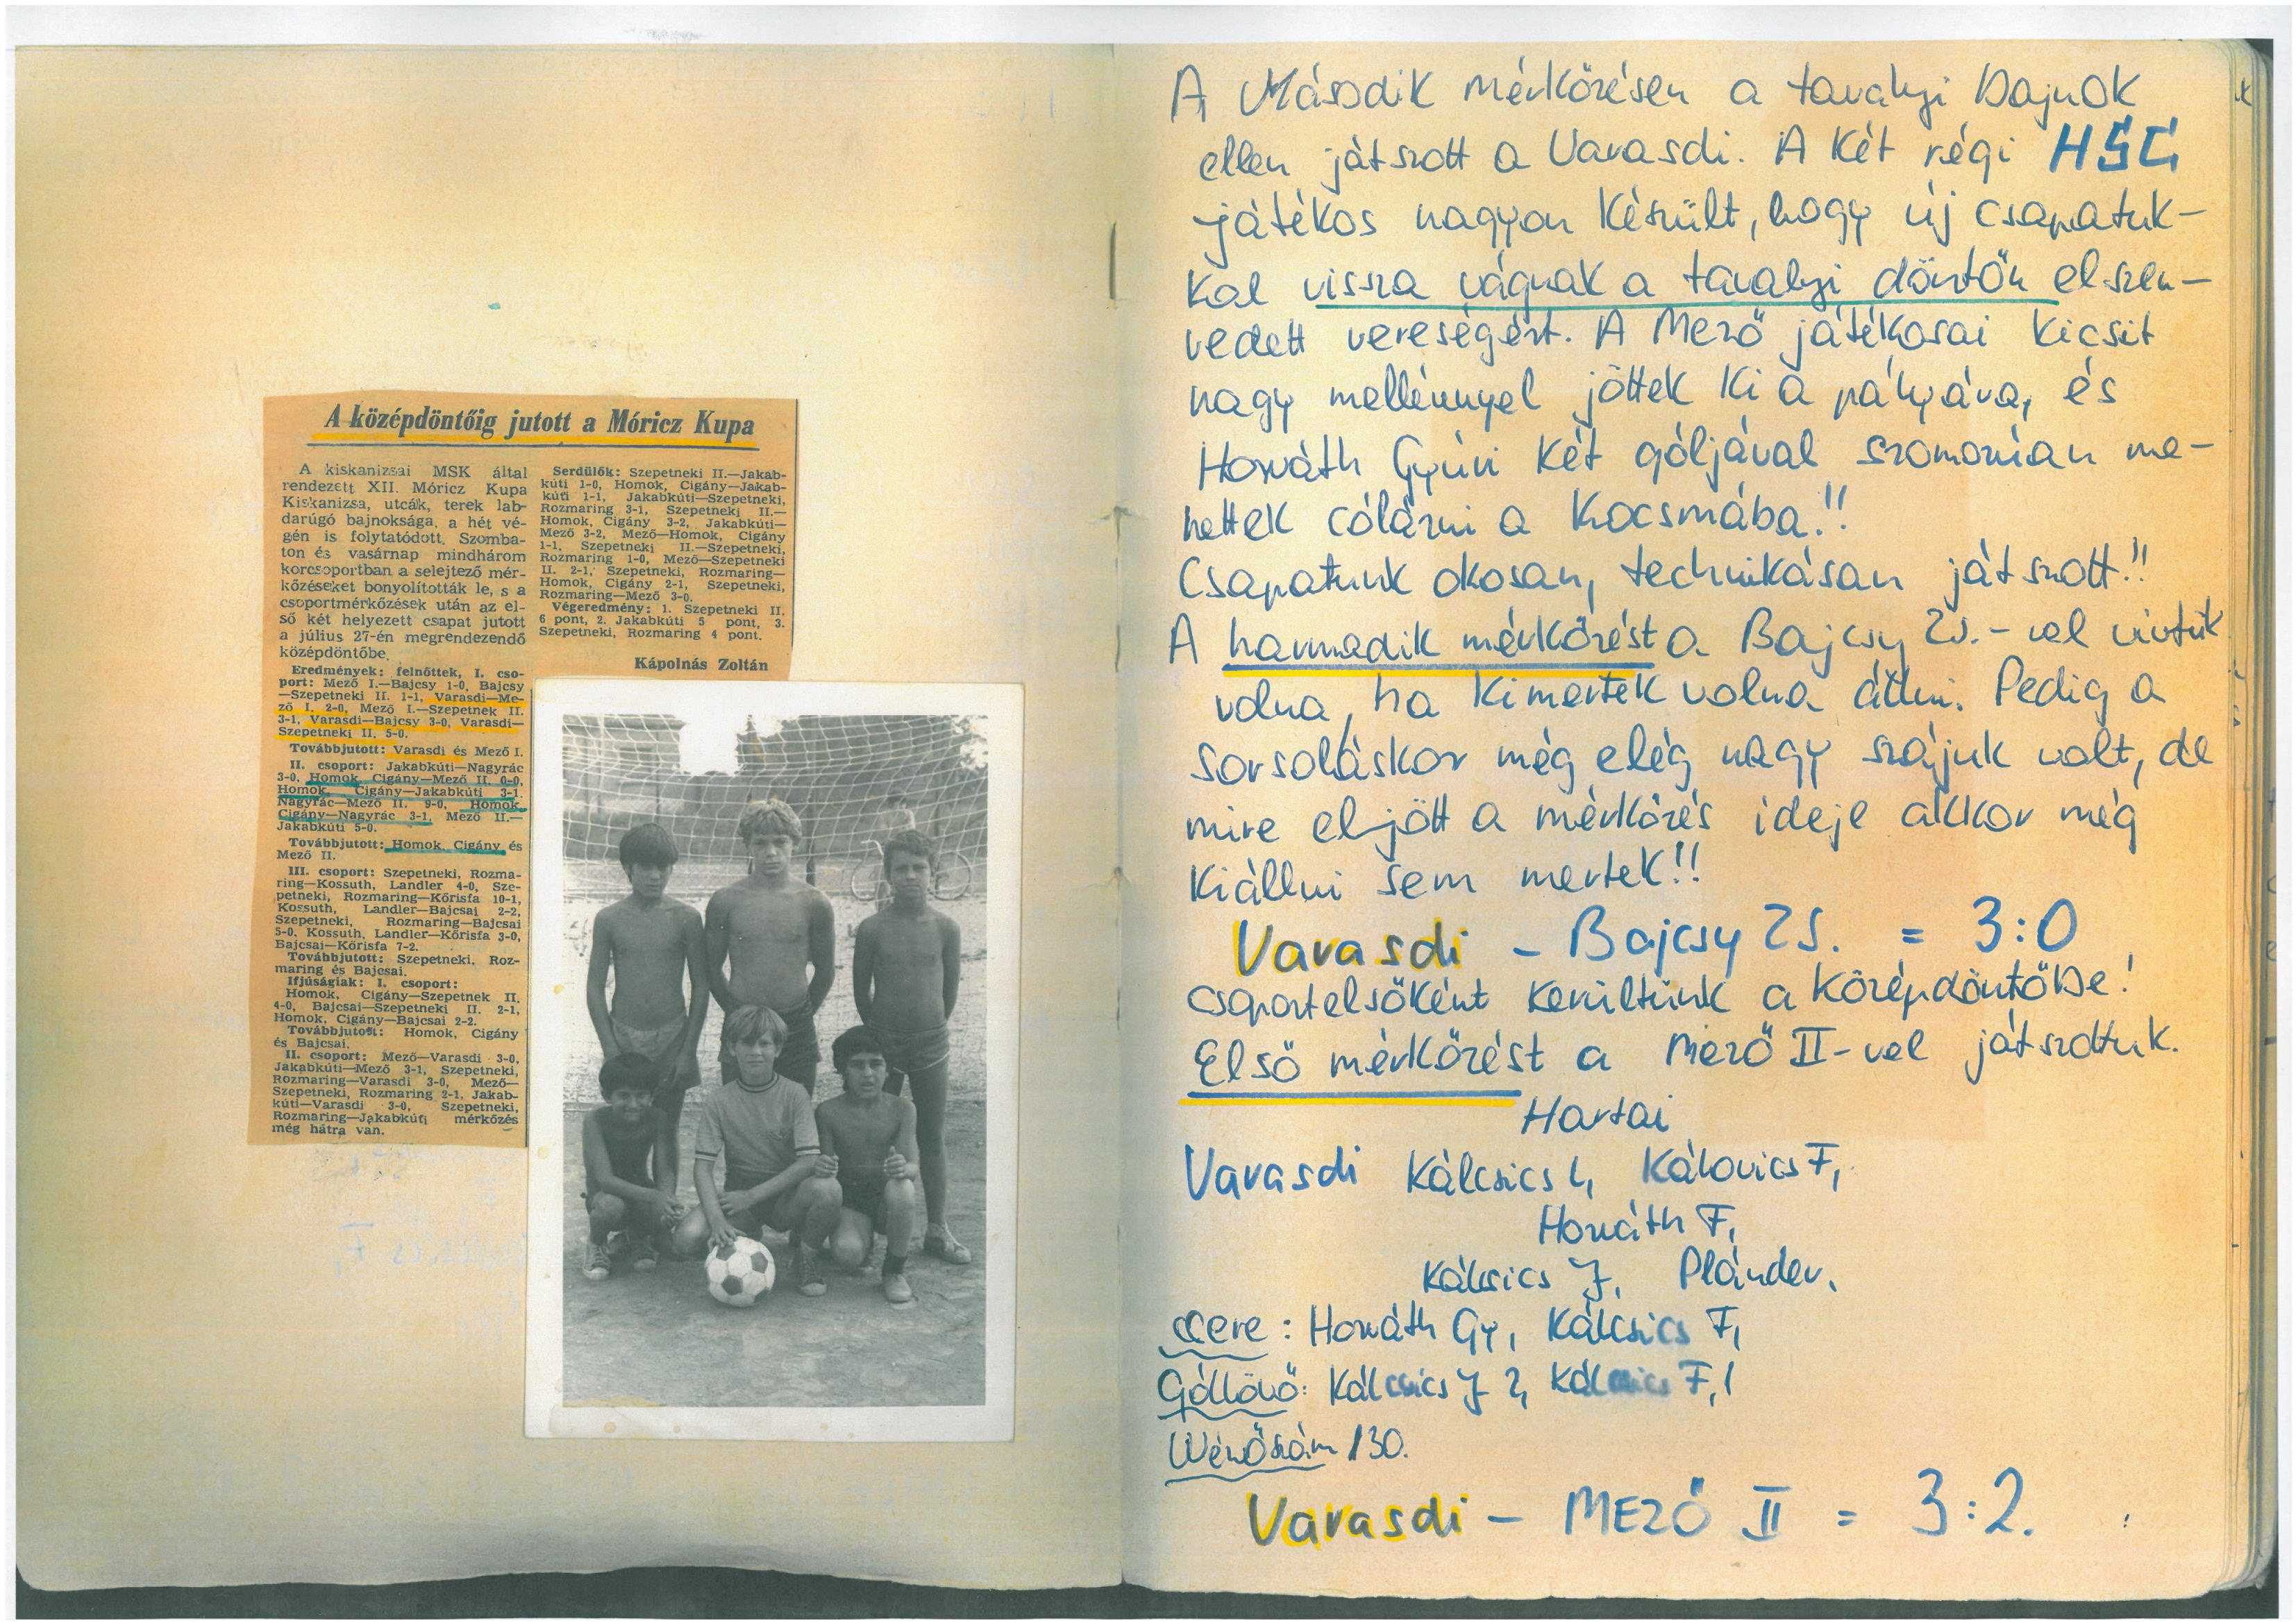 A középdöntőig jutott a Móricz Kupa
A kiskanizsai MSK által
rendezett XII. Móricz Kupa
Kiskanizsa, utcák, terek lab-
darúgó bajnoksága, a hét vé-
gén is folytatódott. Szomba-
ton és vasárnap mindhárom
korcsoportban a selejtező mér-
kőzéseket bonyolították le, s a
csoportmérkőzések után az el-
ső két helyezett csapat jutott
a július 27-én megrendezendő
középdöntőbe.
Eredmények: felnőttek, I. cso-
port: Mező I.—Bajcsy 1-0, Bajcsy
—Szepetneki II. 1-1, Varasdi—Me-
ző I. 2-0, Mező I.—Szepetnek II.
3-1, Varasdi—Bajcsy 3-0, Varasdi—
Szepetneki II. 5-0.
Továbbjutott: Varasdi és Mező I.
II. csoport: Jakabkúti—Nagyrác
3-0, Homok, Cigány—Mező II. 0-0,
Homok, Cigány—Jakabkúti 3-1,
Nagyrác—Mező II. 9-0, Homok,
Cigány—Nagyrác 3-1, Mező II.—
Jakabkúti 5-0.
Továbbjutott: Homok, Cigány és
Mező II.
III. csoport: Szepetneki, Rozma-
ring—Kossuth, Landler 4-0, Sze-
petneki, Rozmaring—Kőrisfa 10-1,
Kossuth, Landler—Bajcsai 2-2,
Szepetneki, Rozmaring—Bajcsai
5-0, Kossuth, Landler—Kőrisfa 3-0,
Bajcsai—Kőrisfa 7-2.
Továbbjutott: Szepetneki, Roz-
maring és Bajcsai.
Ifjúságiak: I. csoport:
Homok, Cigány—Szepetnek II.
4-0, Bajcsai—Szepetneki II. 2-1,
Homok, Cigány—Bajcsai 2-2.
Továbbjutott: Homok, Cigány
és Bajcsai.
II. csoport: Mező—Varasdi 3-0,
Jakabkúti—Mező 3-1, Szepetneki,
Rozmaring—Varasdi 3-0, Mező—
Szepetneki, Rozmaring 2-1, Jakab-
kúti—Varasdi 3-0, Szepetneki,
Rozmaring—Jakabkúti mérkőzés
még hátra van.
Serdülők: Szepetneki II.—Jakab-
kúti 1-0, Homok, Cigány—Jakab-
kúti 1-1, Jakabkúti—Szepetneki,
Rozmaring 3-1, Szepetneki II.—
Homok, Cigány 3-2, Jakabkúti—
Mező 3-2, Mező—Homok, Cigány
1-1, Szepetneki II.—Szepetneki,
Rozmaring 1-0, Mező—Szepetneki
II. 2-1, Szepetneki, Rozmaring—
Homok, Cigány 2-1, Szepetneki,
Rozmaring—Mező 3-0.
Végeredmény: 1. Szepetneki II.
6 pont, 2. Jakabkúti 5 pont, 3.
Szepetneki, Rozmaring 4 pont.
Kápolnás Zoltán
A Második mérkőzésen a tavalyi bajnok
ellen játszott a Varasdi. A két régi HSC
játékos nagyon készült, hogy új csapatuk-
kal vissza vágnak a tavalyi döntőn elszen-
vedett vereségért. A Mező játékosai kicsit
nagy mellénnyel jöttek ki a pályára, és
Horváth Gyuri két góljával szomorúan me-
hettek cólázni a kocsmába!!
Csapatunk okosan, technikásan játszott!!
A harmadik mérkőzést a Bajcsy Zs.-vel vívtuk
volna, ha kimertek volna állni. Pedig a
sorsoláskor még elég nagy szájuk volt, de
mire eljött a mérkőzés ideje akkor még
kiállni sem mertek!!
Varasdi - Bajcsy ZS. = 3:0
Csoportelsőként kerültünk a középdöntőbe!
Első mérkőzést a Mező II-vel játszottuk.
Hartai
Varasdi Kálcsics L, Kálovics F,
Horváth F,
Kálcsics J, Plánder.
csere: Horváth Gy, Kálcsics F,
Góllövő: Kálcsics J 2, Kálcsics F, 1
Nézőszám 130.
Varasdi - MEZŐ II = 3:2.